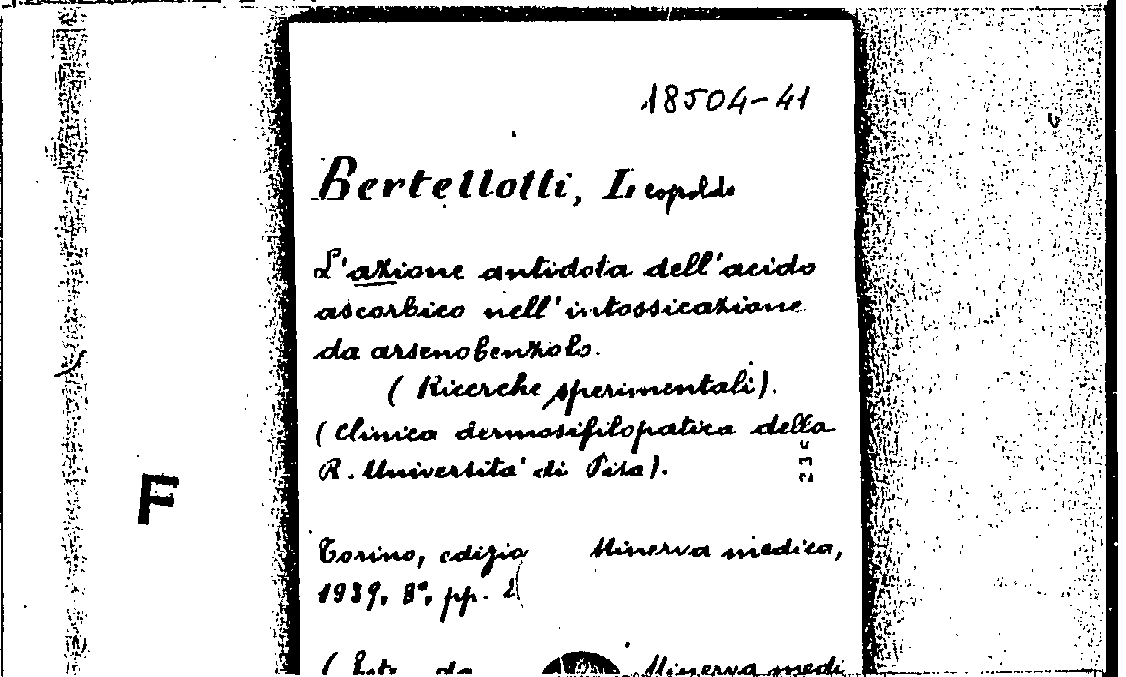 18504-41
Bertellotti, Leopoldo
L'azione antidota dell'acido
ascorbico nell'intossicazione
da arsenobenzolo.
( Ricerche sperimentali).
(Clinica dermosifilopatica della
R. Università di Pisa).
F
Torino, Minerva medica,
1939, 8°, pp.
( Estr. da Minerva medi